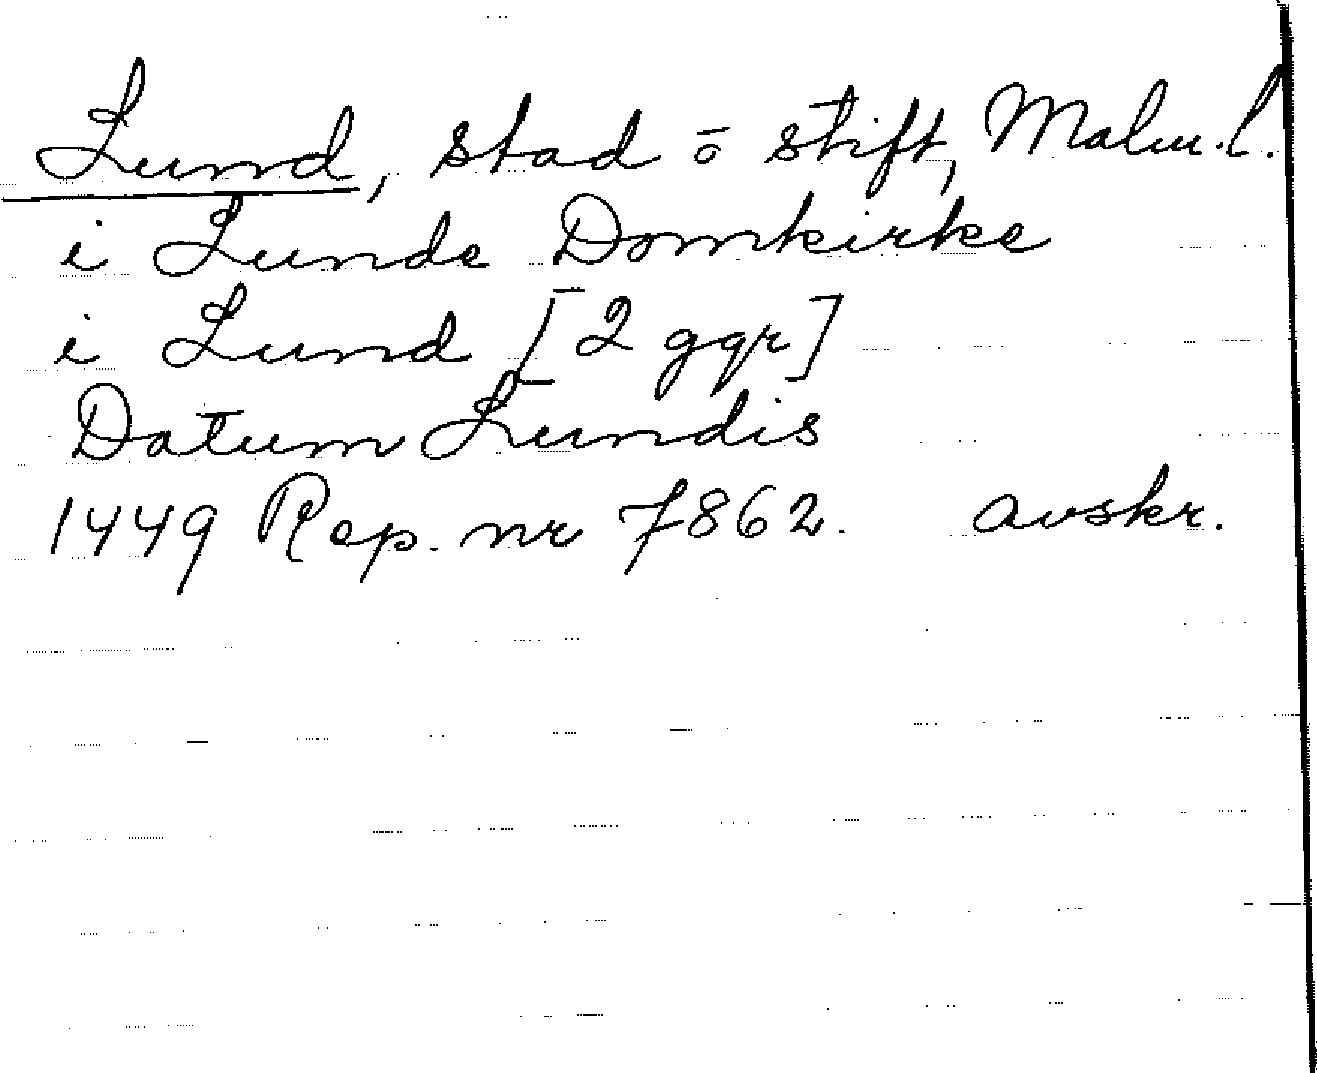 Lund, stad o stift, Malm.l.
i Lunde Domkirke
i Lund [2 ggr]
Datum Lundis
1449 Rep. nr 7862. avskr.